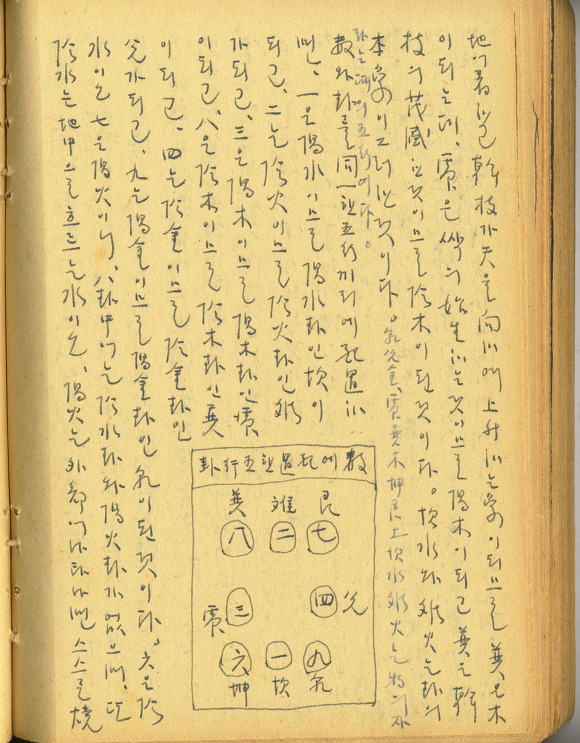 地에着하고 幹枝가 天을 向하여 上升하는 象이되므로 巽은木
이되는데, 震은 싹의 始生하는것이므로 陽木이되고 巽은 幹
枝의 茂盛한것이므로 陰木이된것이다. 坎水와 離火는 卦의
本象이 그러한것이다. 乾兌金, 震巽木 坤艮土 坎水 離火는 物의 자
라는 데의 五行이다.
數와 卦를 同一한 五行끼리에 配置하
면, 一은 陽水이므로 陽水卦인 坎이
되고, 二는 陰火이므로 陰火卦인 離
가되고, 三은 陽木이므로 陽木卦인 震
이되고, 八은 陰木이므로 陰木卦인 巽
이되고, 四는 陰金이므로 陰金卦인
兌가되고, 九는 陽金이므로 陽金卦인 乾이된것이다. 六은 陰
水이오 七은 陽火이니, 八卦中에는 陰水卦와 陽火卦가 없으며, 또
陰水는 地中으로 흐르는 水이오, 陽火는 外部에 나타나면 스스로 燒
數에 配置한 五行卦
巽 離 艮
八 二 七
震 三 四 兌
六 一 九
坤 坎 乾